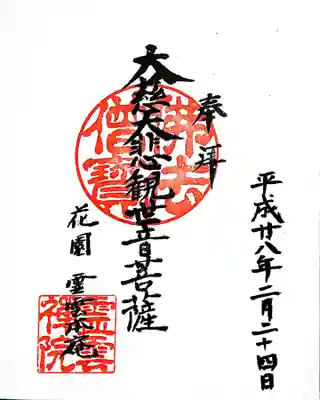 平成廿八年二月二十四日
奉拝
大慈大悲観世音菩薩
佛法僧寳
花園 霊雲本庵
霊雲禅院